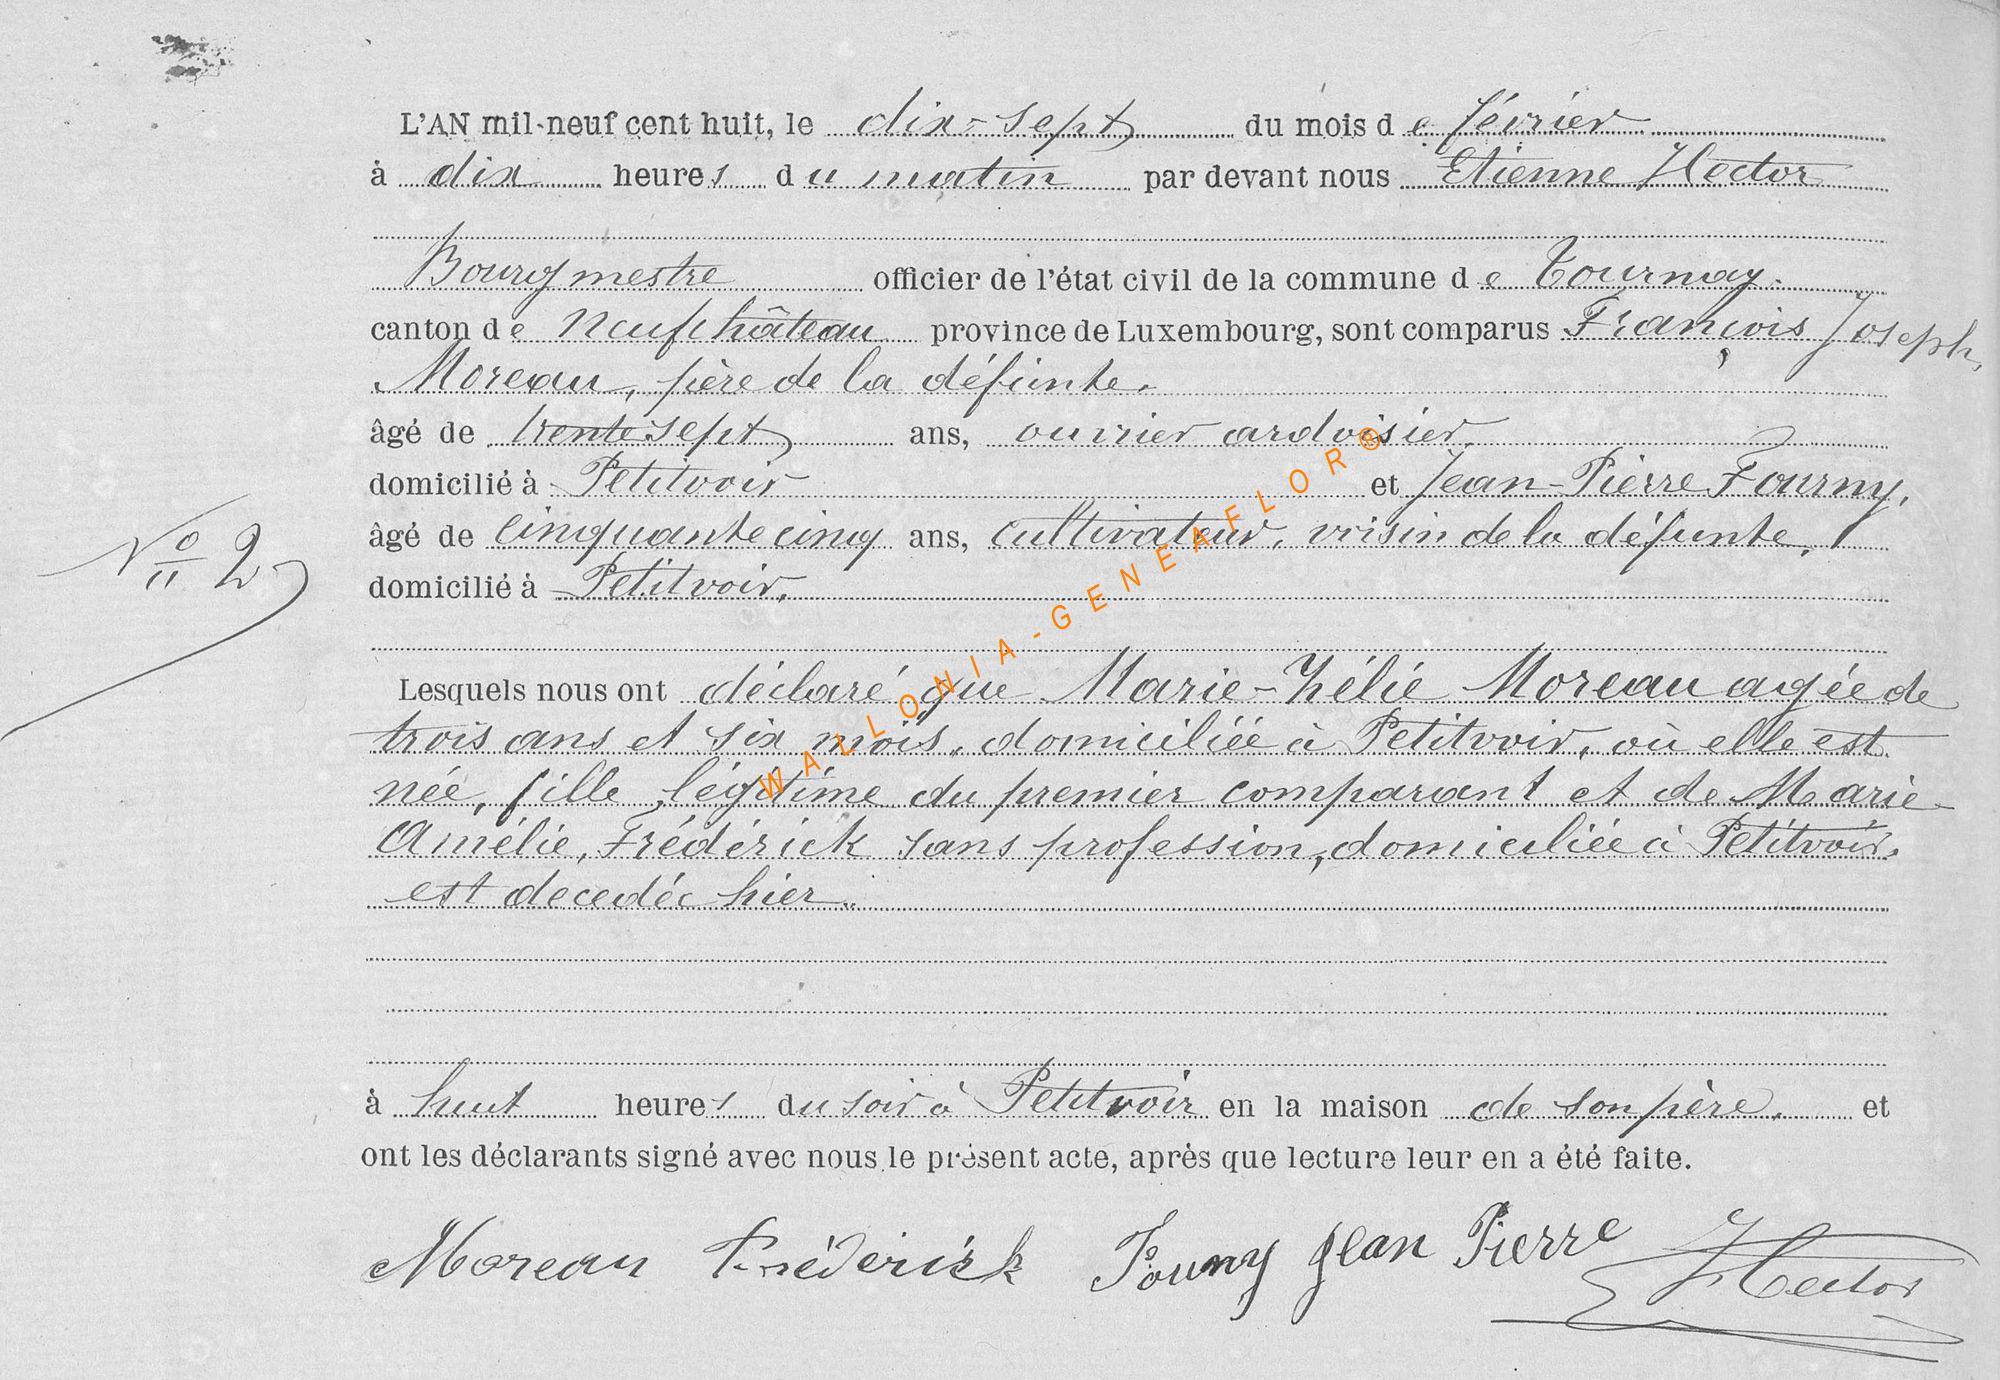 L'AN mil-neuf cent huit, le dix-sept du mois de février
à dix heures du matin par devant nous Etienne Hector
Bourgmestre officier de l'état civil de la commune de Tournay.
canton de Neufchâteau province de Luxembourg, sont comparus François Joseph,
Moreau, père de la défunte.
âgé de trente sept ans, ouvrier ardoisier,
domicilié à Petitvoir et Jean-Pierre Fourny,
âgé de cinquante cinq ans, cultivateur, voisin de la défunte,
N° 2
domicilié à Petitvoir,
Lesquels nous ont déclaré que Marie-Zélie Moreau agée de
trois ans et six mois, domiciliée à Petitvoir, où elle est
née, fille légitime du premier comparant et de Marie
Amélie, Frédérick sans profession, domiciliée à Petitvoir,
est decedée hier..
à huit heures du soir à Petitvoir en la maison de son père, et
ont les déclarants signé avec nous le présent acte, après que lecture leur en a été faite.
Moreau Fréderick Fourny Jean Pierre Hector
WALLONIA-GENEAFLOR®